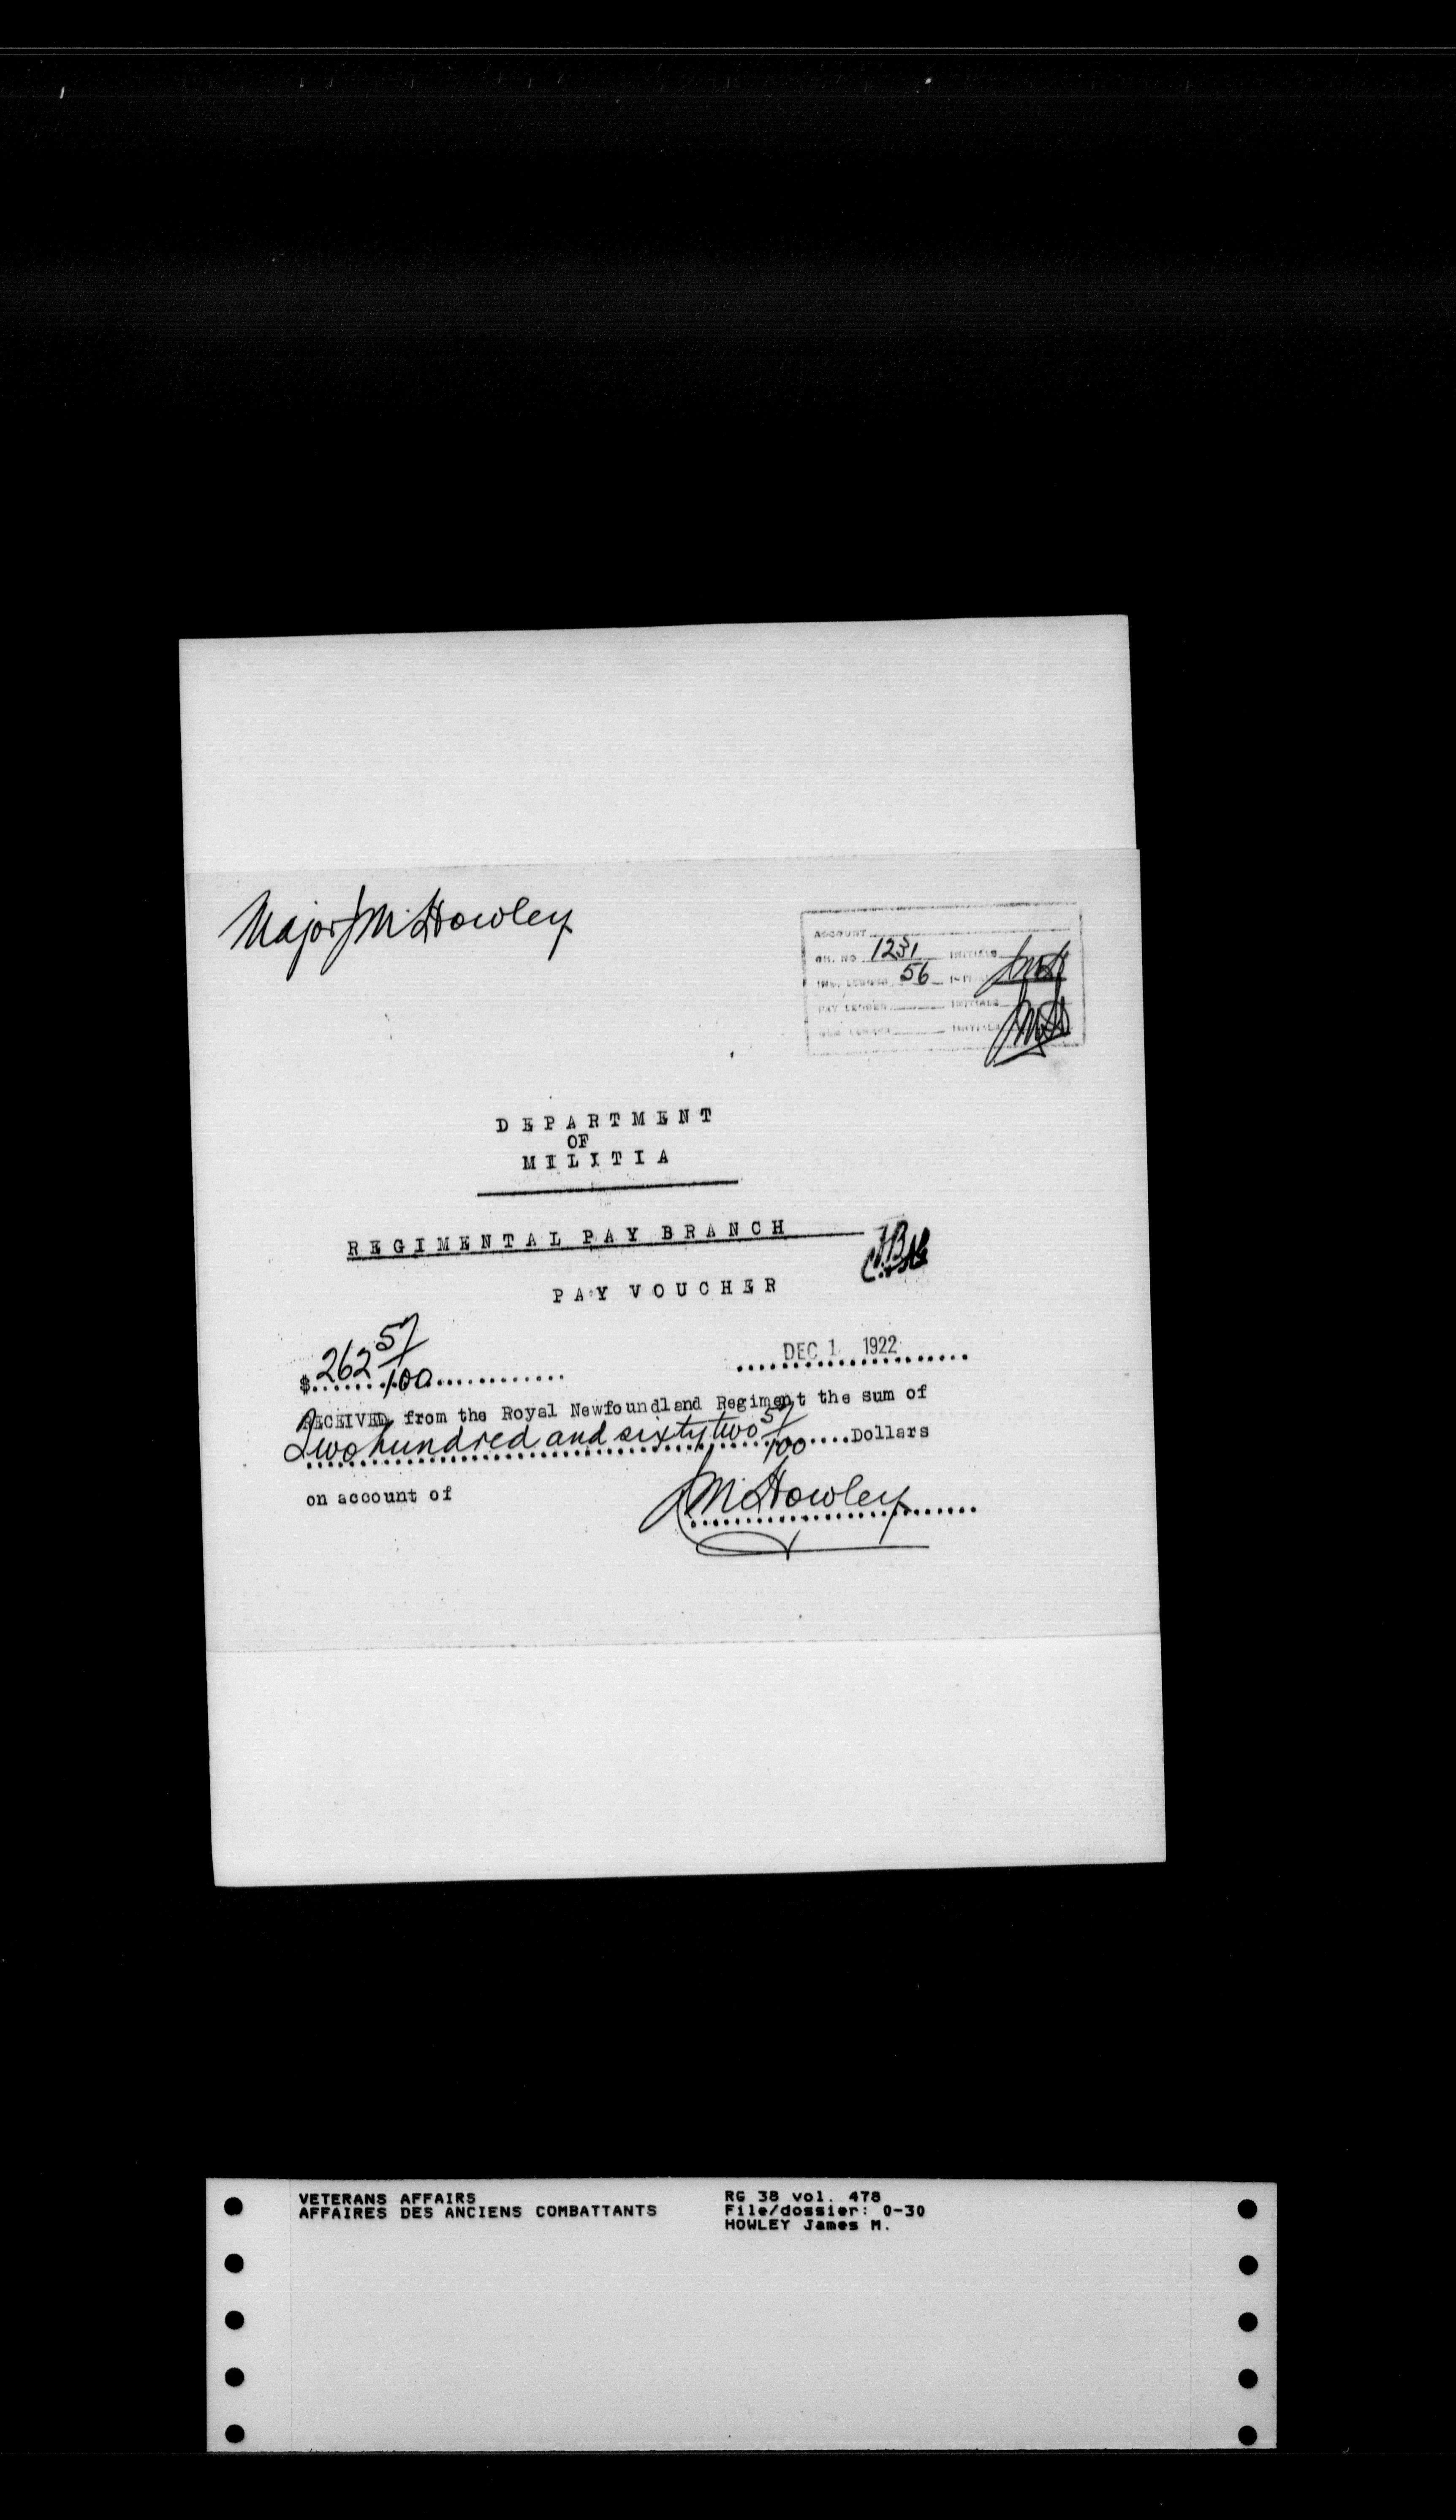 Major J M Howley
ACCOUNT
CH. NO 1231 INITIALS
IND. LEDGER 56 INITIALS
PAY LEDGER INITIALS
GEN LEDGER INITIALS
DEPARTMENT
OF
MILITIA
REGIMENTAL PAY BRANCH
PAY VOUCHER
$ 262 57/100
DEC 1 1922
RECEIVED from the Royal Newfoundland Regiment the sum of
Two hundred and sixty two 57/100 Dollars
on account of
J M Howley
VETERANS AFFAIRS
AFFAIRES DES ANCIENS COMBATTANTS
RG 38 vol. 478
File/dossier: 0-30
HOWLEY James M.